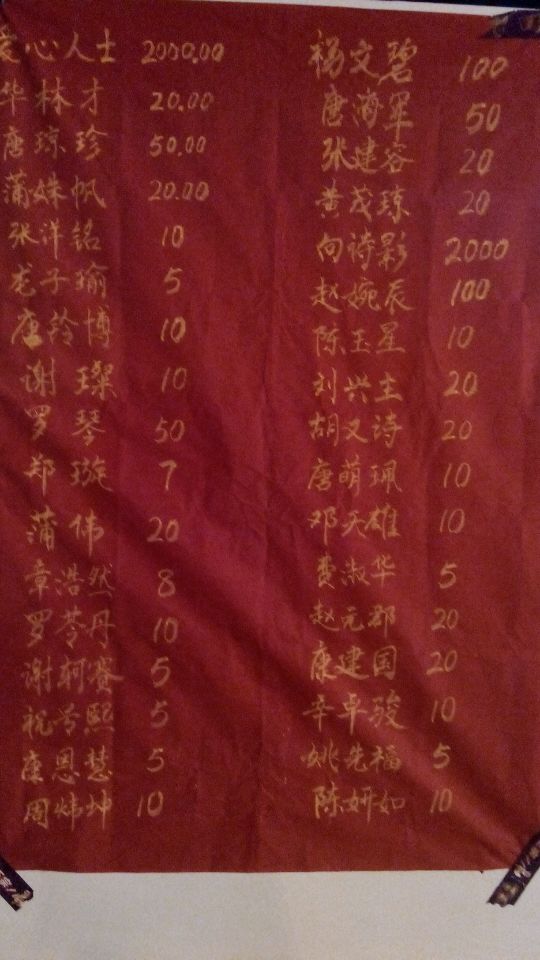 爱心人士 2000.00
华林才 20.00
唐琼珍 50.00
蒲姝帆 20.00
张洋铭 10
龙子瑜 5
唐铃博 10
谢璨 10
罗琴 50
郑璇 7
蒲伟 20
章浩然 8
罗苓丹 10
谢轲赛 5
祝 熙 5
唐恩慧 5
周炜坤 10
杨文碧 100
唐海军 50
张建容 20
黄茂琼 20
向诗影 2000
赵婉辰 100
陈玉星 10
刘兴主 20
胡又诗 20
唐萌珮 10
邓天雄 10
费淑华 5
赵元郡 20
康建国 20
辛卓骏 10
姚先福 5
陈妍如 10